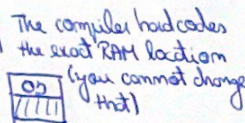 The compiler hardcodes
the exact RAM location
(you cannot change
that)
OS